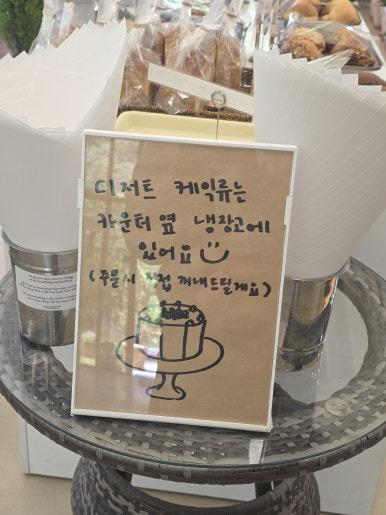 디저트 케익류는
카운터 옆 냉장고에
있어요
(주문시 직접 꺼내드릴게요)